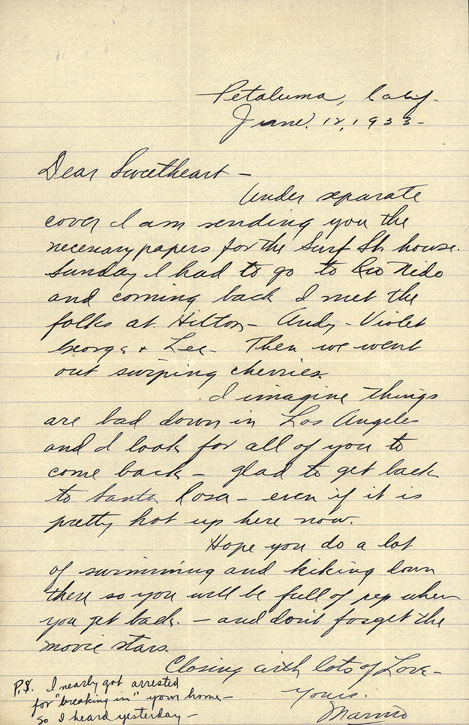 Petaluma, Calif.
June. 12, 1933-
Dear Sweetheart -
Under separate
cover I am sending you the
necessary papers for the Surf St. house.
Sunday I had to go to Rio Nido
and coming back I met the
folks at Hilton - Andy - Violet
George + Lee - Then we went
out swiping cherries.
I imagine things
are bad down in Los Angeles
and I look for all of you to
come back - glad to get back
to Santa Rosa - even if it is
pretty hot up here now.
Hope you do a lot
of swimming and hiking down
there so you will be full of pep when
you get back. - and don't forget the
movie stars.
Closing with lots of Love -
Yours.
P.S. I nearly got arrested
for "breaking in" your home -
so I heard yesterday -